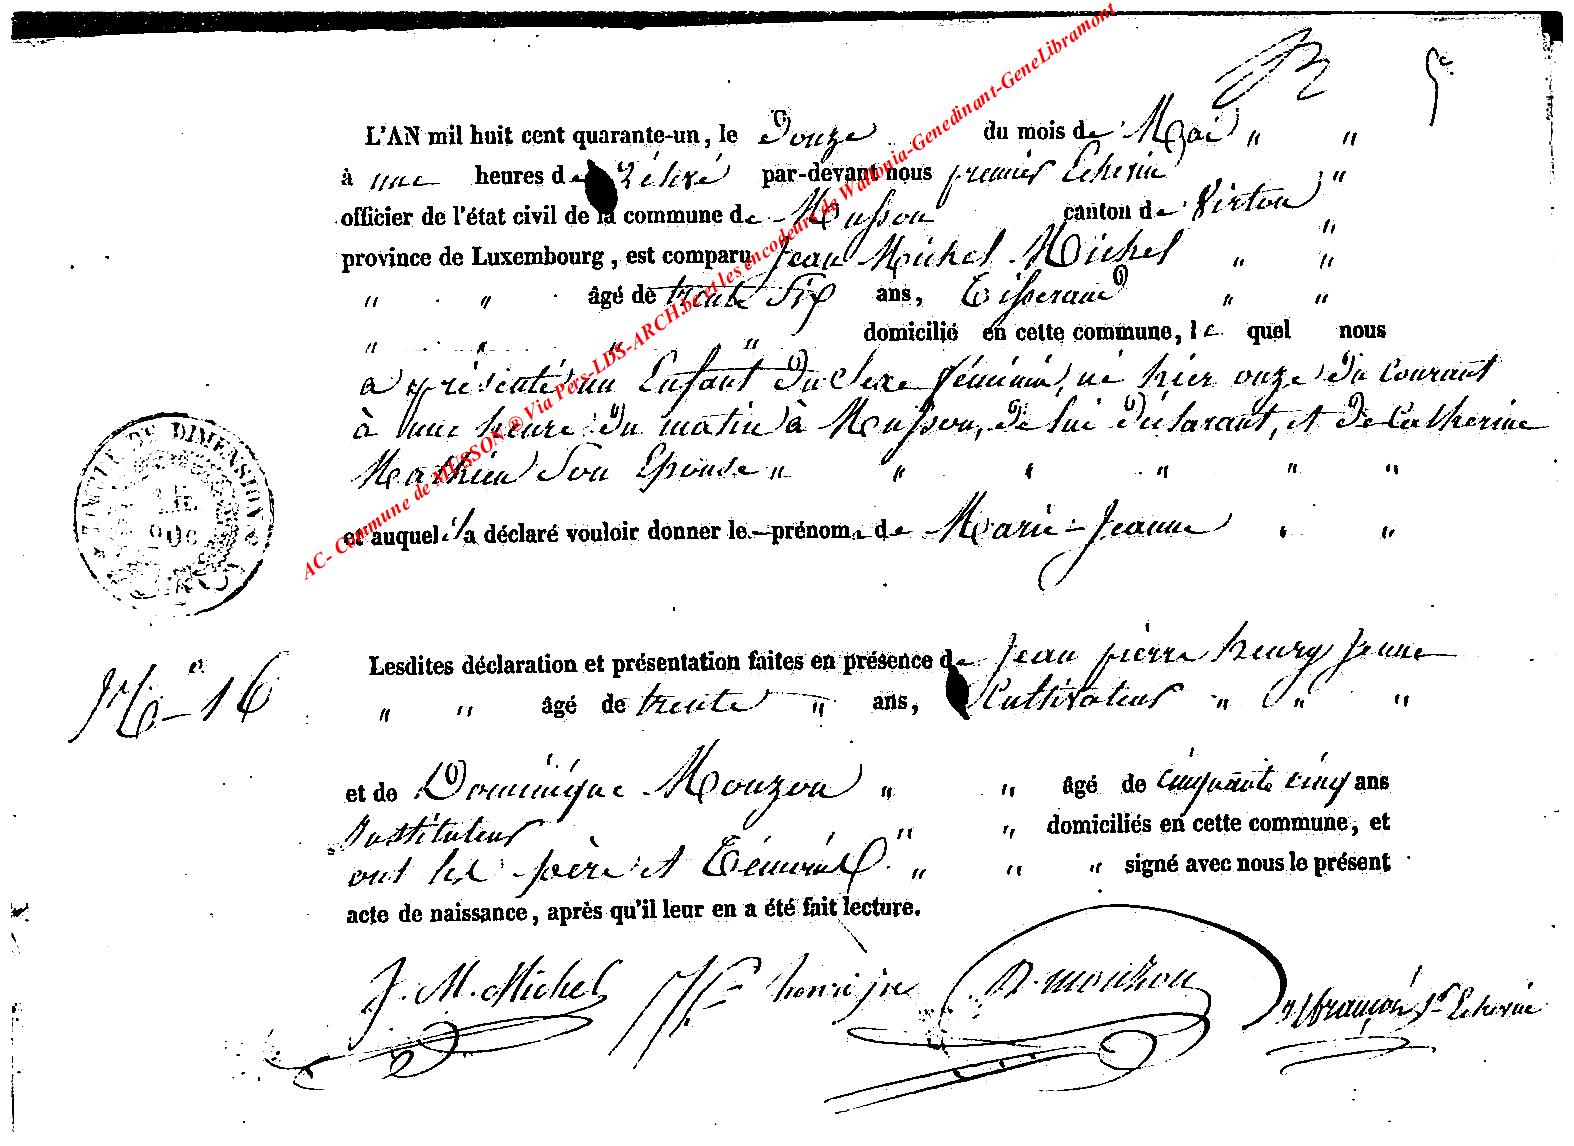 5e
L'AN mil huit cent quarante-un, le Douze du mois de Mai " "
à une heures de Rélevé par-devant nous premier Echevin "
officier de l'état civil de la commune de Musson canton de Virton "
province de Luxembourg, est comparu Jean Michel Michel " "
" " âgé de trente Six ans, Tisserand " "
" " " " domicilié en cette commune, le quel nous
a présenté un Enfant Du Sexe féminin, né hier onze Du Courant
à une heure Du matin à Musson, De lui Déclarant, et De Catherine
Mathieu Son Epouse " " " " " "
et auquel il a déclaré vouloir donner le prénom de Marie-Jeanne " "
TIMBRE DE DIMENSION
Lesdites déclaration et présentation faites en présence de Jean pierre henry Jeune
No 16
" " âgé de trente " ans, Cultivateur " " "
et de Dominique Mouzon " " âgé de cinquante cinq ans
Instituteur " " domiciliés en cette commune, et
ont les père et Témoins " " " signé avec nous le présent
acte de naissance, après qu'il leur en a été fait lecture.
J. M. Michel henri jne D. mouzon 1er Echevin
AC- Commune de MUSSON ® Via Pers-LDS-ARCH.be et les encodeurs de Wallonia-Genedinant-GeneLibramont